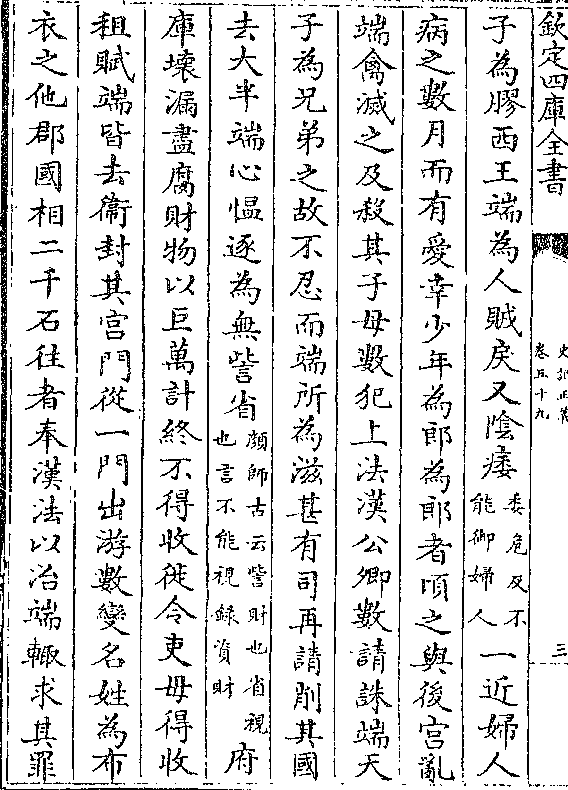 欽定四庫全書
史記正義
卷五十九
三
子為膠西王端為人賊戾又陰痿委危反不能御婦人一近婦人
病之數月而有愛幸少年為郎為郎者頃之與後宮亂
端禽滅之及殺其子母數犯上法漢公卿數請誅端天
子為兄弟之故不忍而端所為滋甚有司再請削其國
去大半端心慍遂為無訾省顔師古云訾財也省視也言不能視録資財府
庫壞漏盡腐財物以巨萬計終不得收徙令吏毋得收
租賦端皆去衞封其宮門從一門出游數變名姓為布
衣之他郡國相二千石往者奉漢法以治端輙求其罪